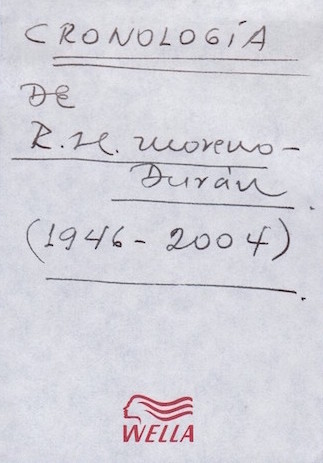 CRONOLOGÍA
DE
R.H. Moreno-
Durán.
(1946-2004)
WELLA